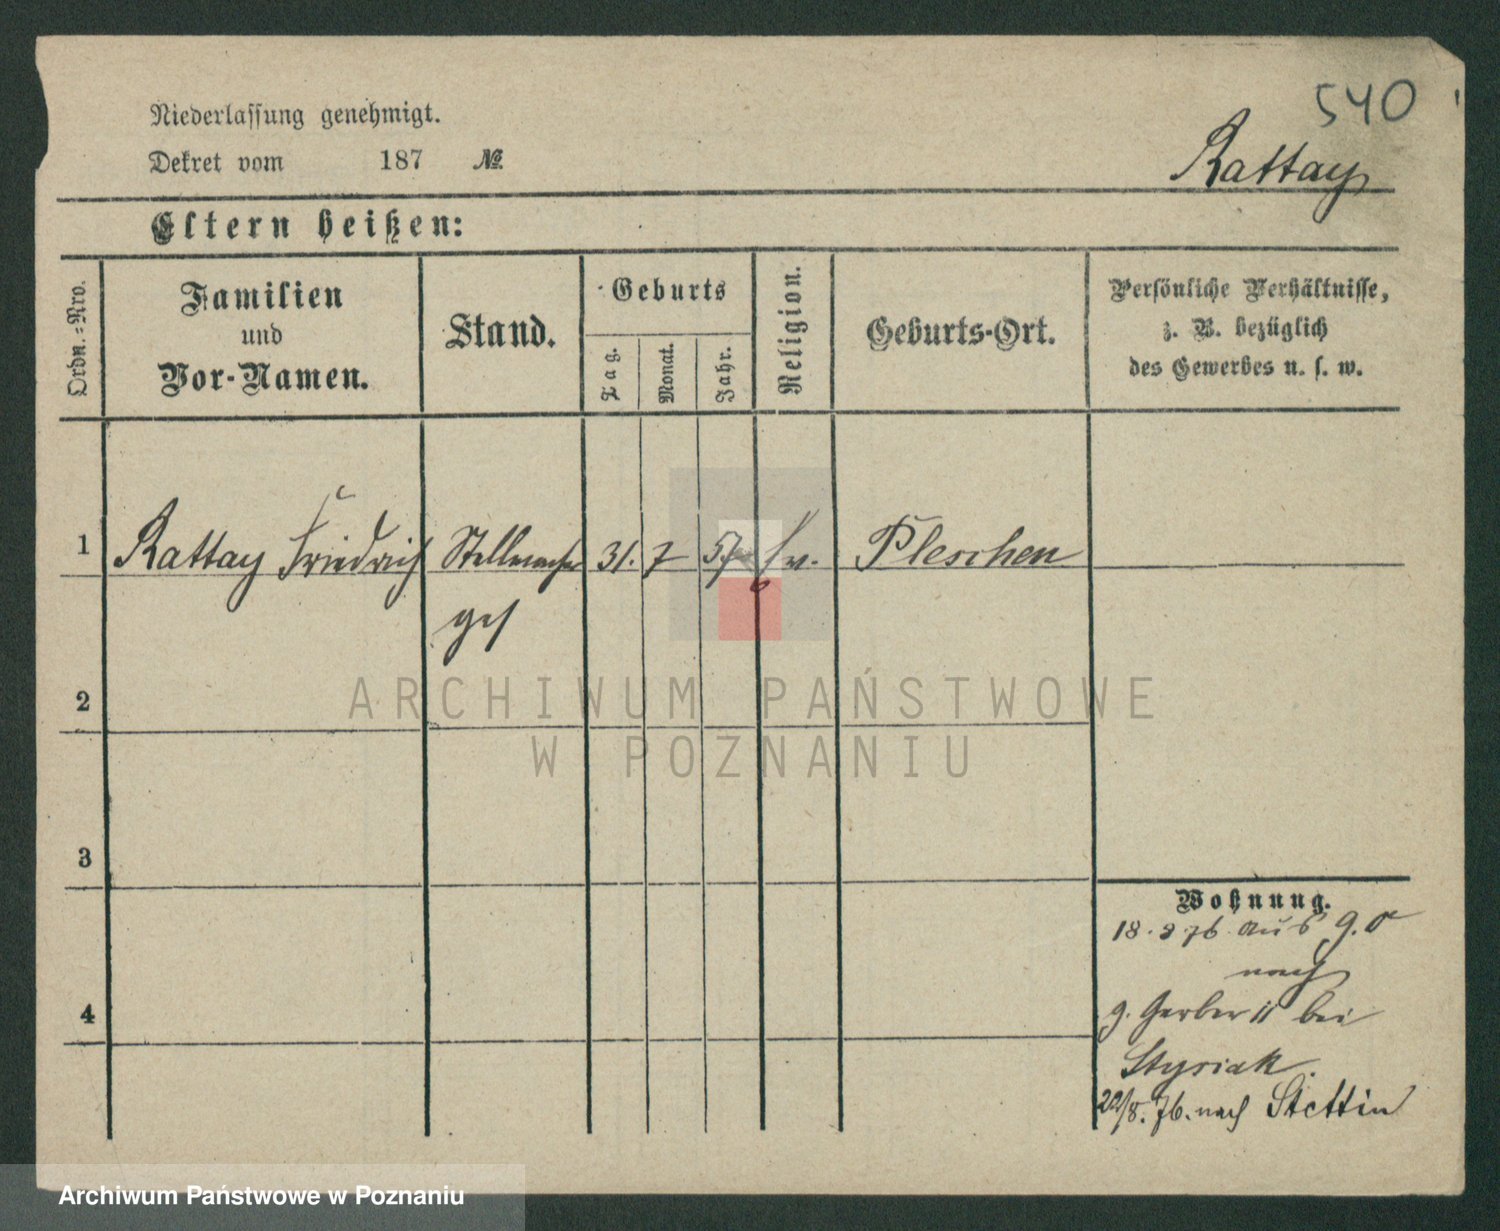 540
Niederlassung genehmigt.
Dekret vom 187 №
Rattay
Eltern heißen:
Ordn.=Nro.
Familien
und
Vor-Namen.
Stand.
Geburts
Tag.
Monat.
Jahr.
Religion.
Geburts-Ort.
Persönliche Verhältnisse,
z. B. bezüglich
des Gewerbes u. s. w.
1 Rattay Friedrich Stellmacher 31. 7 57 ev. Pleschen
ges
2
3
4
Wohnung.
18. 3 76 aus
nach
g. Gerber 11 bei
Stysiak.
22/8. 76. nach Stettin
ARCHIWUM PAŃSTWOWE
W POZNANIU
Archiwum Państwowe w Poznaniu